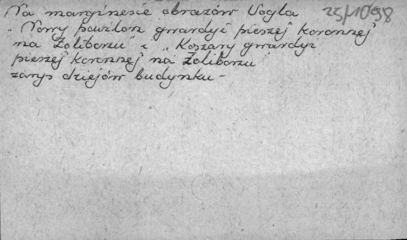 Na marginesie obrazów Vogla 25/1098
"Nowy pawilon gwardyi pieszej koronnej
na Żoliborzu" i "Koszary gwardyi
pieszej koronnej na Żoliborzu"
zarys dziejów budynku -